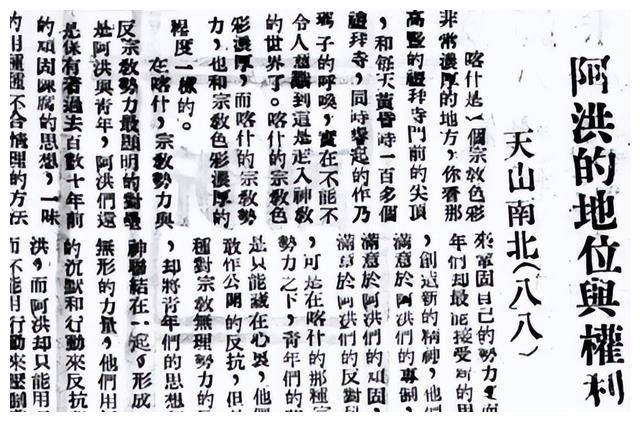 阿洪的地位與權利
天山南北(八八)
喀什是一個宗教色彩
非常濃厚的地方,你看那
高聳的禮拜寺門前的尖頂
,和每天黃昏時一百多個
禮拜寺,同時響起的作乃
瑪子的呼喚,實在不能不
令人意識到這是走入神教
的世界了。喀什的宗教色
彩濃厚,而喀什的宗教勢
力,也和宗教色彩濃厚的
程度一樣的。
在喀什,宗教勢力與
反宗教勢力最顯明的對壘
是阿洪與青年,阿洪們還
是保有着過去百數十年前
的頑固陳腐的思想,一味
的用種種不合情理的方法
來鞏固自己的勢力,而
年們却最能接受新的思
,創造新的精神,他們
滿意於阿洪們的專制,
滿意於阿洪們的頑固,
滿意於阿洪們的反對科
,可是在喀什的那種宗
勢力之下,青年們的
是只能藏在心裏,他們
敢作公開的反抗,但
種對宗教無理勢力的
,却將青年們的思想
神聯結在一起,形成
無形的力量,他們用
的沉默和行動來反抗
洪,而阿洪却只能用
而不能用行動來壓制